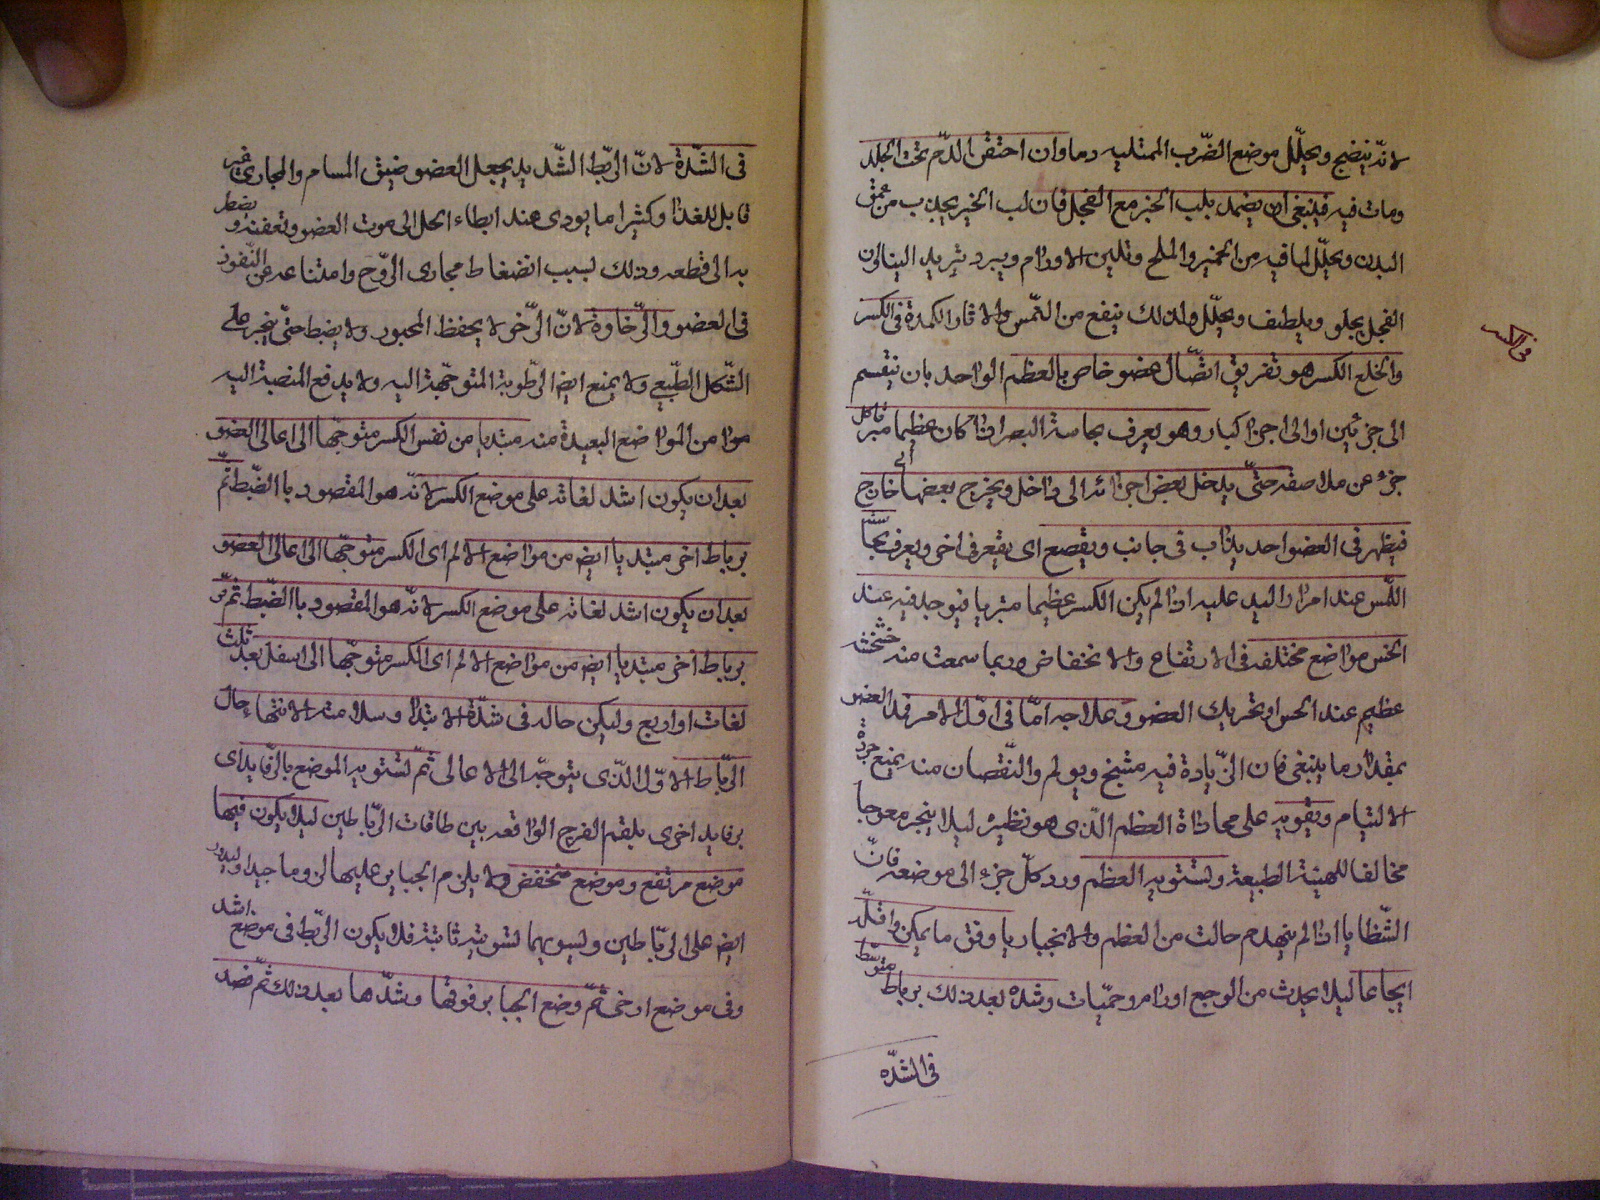 لانّه ينضج ويحلّل موضع الضّرب الممتليه دما وان احتقن الدّم تحت الجلد
ومات فيه فينبغى ان يضمد بلب الخبز مع الفجل فان لب الخبز يجذب من عمق
البدن ويحلّل لما فيه من الخمير والملح وتلين الاورام ويبرد تبريد
الفجل يجلو ويلطف ويحلّل ولذلك ينفع من النّمش والاثار الكمدة فى الكسر
والخلع الكسر هو تفريق اتّصال عضو خاص بالعظم الواحد بان ينقسم
الى جزئين او الى اجزا كبار وهو يعرف بحاسة البصر اذا كان عظيما متبر فا كل
جزء عن ملاصقه حتّى يدخل بعض اجزائه الى داخل ويخرج بعضها الى خارج
فيظهر فى العضو احديداب فى جانب وتقصع اى تقعر فى اخر ويعرف بحاسّة
اللّمس عند امرار اليد عليه اذا لم يكن الكسر عظيما متبريا فيوجد فيه عند
الجس مواضع مختلفه فى الارتفاع والانخفاض وربما سمعت منه خشخشه
عظيم عند الجس او تحريك العضو وعلاجه امّا فى اوّل الامر فمد العضو
بمقدار ما ينبغى فان الزّيادة فيه مشنج ويولم والنّقصان منه يمنع جودة
الالتيام وتقويه على محاذاة العظم الّذى هو نظيره ليلا ينجبر معوجا
مخالفا للهيئة الطبيعة وتستويه العظم ورد كلّ جزء الى موضعه فانّ
الشّظايا اذا لم ينهدم حالت من العظم والانجبار با وفق ما يمكن واقلّه
ايجاعا ليلا يحدث من الوجع اوراما وحمّيات وشده بعد ذلك برباط متوسّط
فى الشدّه
فى الكسر
فى الشّدة لانّ الرّبط الشّديد يجعل العضو ضيق المسام والمجارى غير
قابل للغذا وكثيرا ما يودى عند ابطاء الحل الى موت العضو وتعفنه ويضطر
به الى قطعه وذلك لسبب انضغاط مجارى الرّوح وامتناعه عن النّفوذ
فى العضو والرّخاوة لانّ الرّخو لا يحفظ المجبور ولا يضبط حتّى ينجبر على
الشّكل الطّبيعى ولا يمنع ايض الرّطوبة المتوجّهة اليه ولا يدفع المنصبة اليه
موا من المواضع البعيدة منه مبتديا من نفس الكسر متوجّها الى اعالى العضو
بعد ان يكون اشد لفاته على موضع الكسر لانّه هو المقصود با الضّبط ثمّ
برباط اخر مبتديا ايض من مواضع الالم اى الكسر متوجّها الى اعالى العضو
بعد ان يكون اشد لفاته على موضع الكسر لانّه هو المقصود با الضّبط ثمّ
برباط اخر مبتديا ايض من مواضع الالم اى الكسر متوجّها الى اسفل بعد ثلث
لفات او اربع وليكن حاله فى شدّة الابتدا وسلامته الانتها حال
الرّباط الاوّل الّذى يتوجّه الى الاعالى ثمّ تستويه الموضع بالرّفايد اى
برفايد اخرى يلقم الفرج الواقعه بين طاقات الرّباطين ليلا يكون فيها
موضع مرتفع وموضع منخفض ولا يلزم الجباير عليها لزوما جيدا
ايض على الرّباطين وليسويهما تسويته ثابتة فلا يكون الرّبط فى موضع اشد
وفى موضع ارخى ثمّ وضع الجبابر فوقها وشدّها بعد ذلك ثمّ فصد